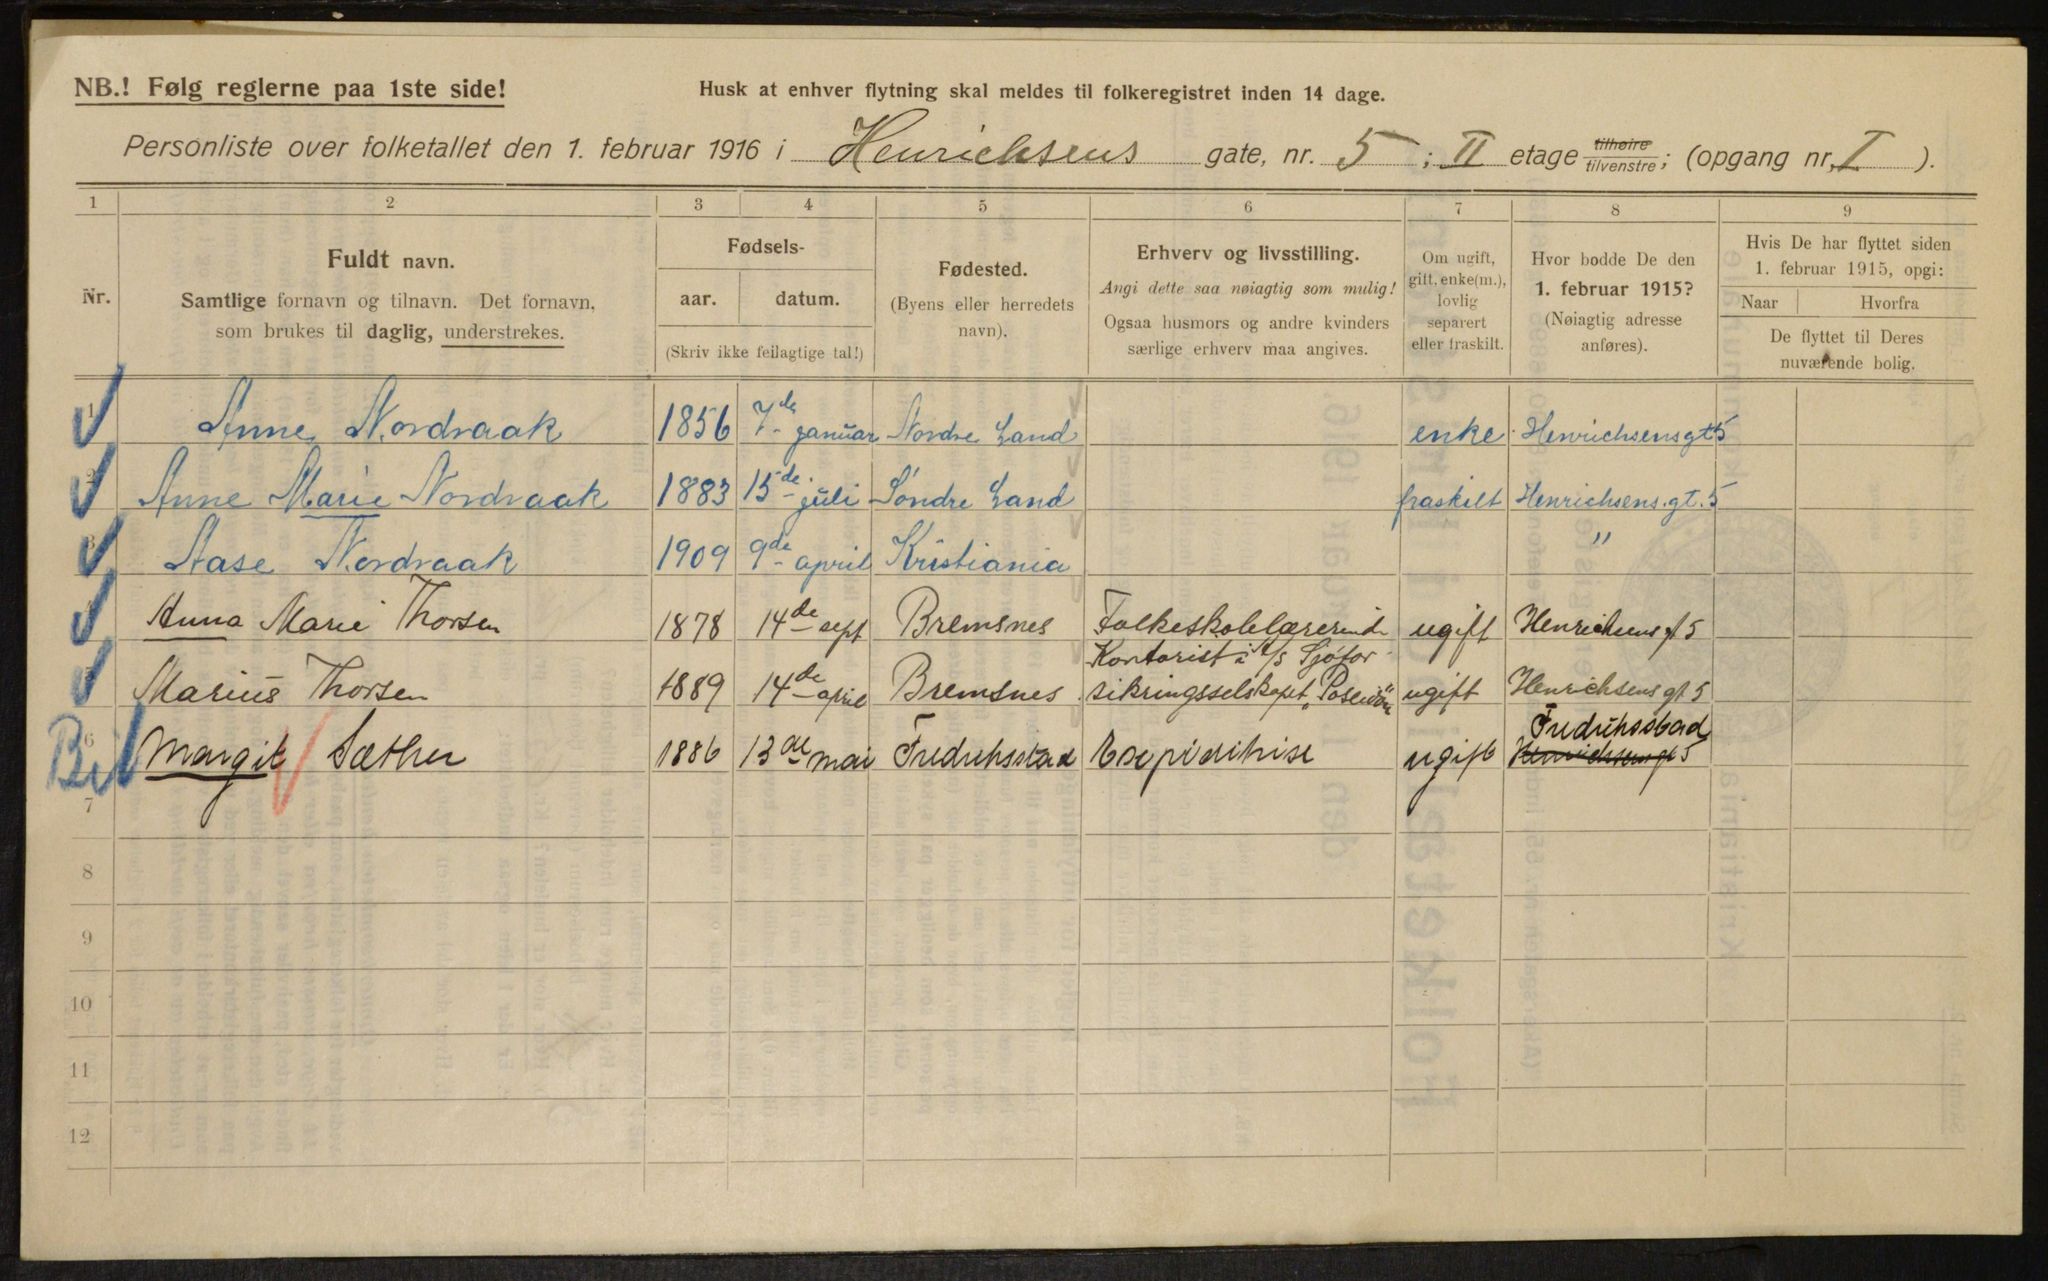 NB.! Følg reglerne paa 1ste side!
Husk at enhver flytning skal meldes til folkeregistret inden 14 dage.
Personliste over folketallet den 1. februar 1916 i Henrichsens gate, nr. 5 ; II etage tilhøire/tilvenstre; (opgang nr. I ).
1 2 3 4 5 6 7 8 9
Nr.
Fuldt navn.
Samtlige fornavn og tilnavn. Det fornavn,
som brukes til daglig, understrekes.
Fødsels-
aar. datum.
(Skriv ikke feilagtige tal!)
Fødested.
(Byens eller herredets
navn).
Erhverv og livsstilling.
Angi dette saa nøiagtig som mulig!
Ogsaa husmors og andre kvinders
særlige erhverv maa angives.
Om ugift,
gift, enke(m.),
lovlig
separert
eller fraskilt.
Hvor bodde De den
1. februar 1915?
(Nøiagtig adresse
anføres).
Hvis De har flyttet siden
1. februar 1915, opgi:
Naar Hvorfra
De flyttet til Deres
nuværende bolig.
1 Anne Nordraak 1856 7de januar Nordre Land enke Henrichsensgt 5
2 Anne Marie Nordraak 1883 15de juli Søndre Land fraskilt Henrichsens.gt. 5
3 Aase Nordraak 1909 9de april Kristiania "
4 Anna Marie Thorsen 1878 14de sept Bremsnes Folkeskolelærerinde ugift Henrichsens gt 5
Kontorist i A/S Sjøfor-
5 Marius Thorsen 1889 14de april Bremsnes sikringsselskapet „Poseidon" ugift Henrichsens gt 5
Fredriksstad
Bil 6 Margit Sæther 1886 13de mai Fredriksstad Expeditrise ugift Henrichsens gt 5
7
8
9
10
11
12